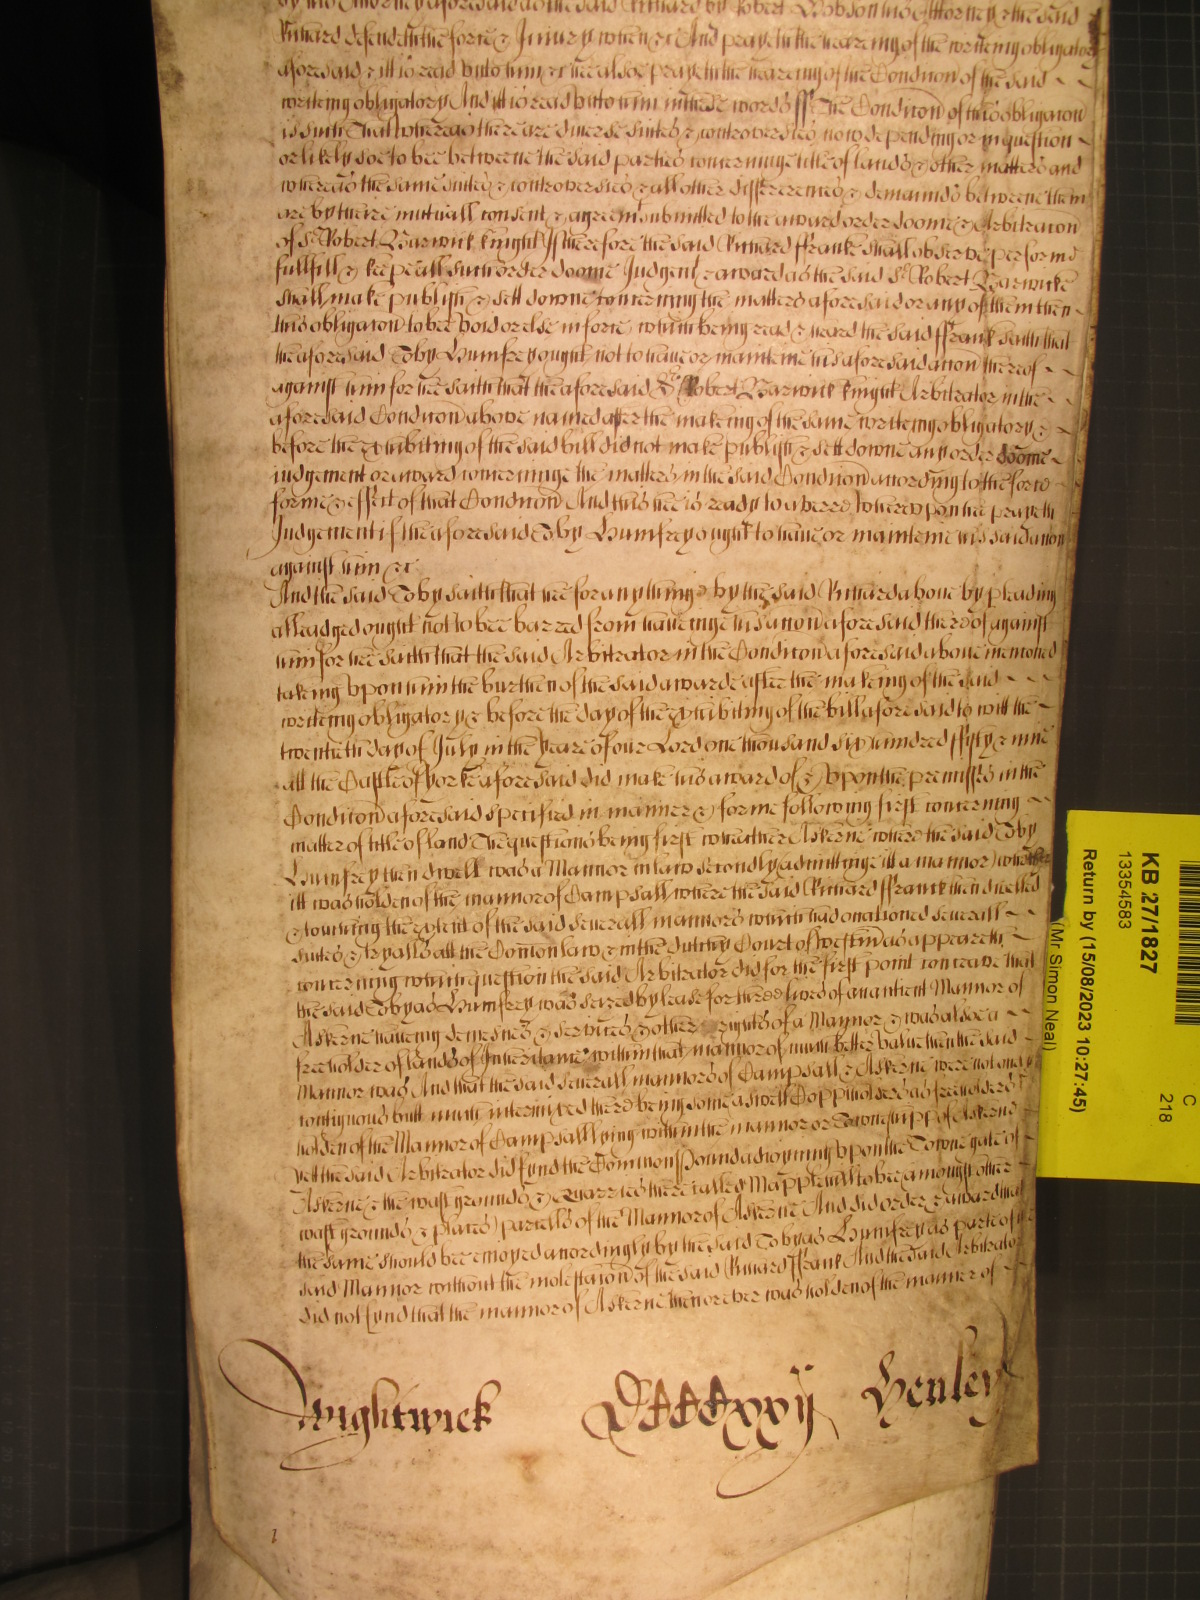 by his Attorney aforesaid as the said Richard by Robert Hobson his Attorney & the said
Richard defendeth the force & Iniury when &c And prayeth the heareing of the writeing obligatory
aforesaid & itt is read vnto him &c hee alsoe prayeth the heareing of the Condicon of the said
writeing obligatory And itt is read vnto him in these words ss The Condicon of this obligacon
is such That whereas there are diverse suites & controversies now depending or in question
or likely soe to bee betweene the said parties concerninge title of lands & other matters and
whereas the same suites & controversies & all other differrences & demaunds betweene them
are by theire mutuall consent & agreemt submitted to the award order doome & Arbitracon
of Sr Robert Barwick knight If therefore the said Richard ffranke shall observe performe
fullfill & keepe all such order doome Judgemt & award as the said Sr Robert Barwicke
shall make publish & sett downe concerning the matters aforesaid or any of them then
this obligacon to bee void or else in force which being read & heard the said ffrank saith that
the aforesaid Toby Humfrey ought not to haue or mainteine his aforesaid accon thereof
against him for hee saith that the aforesaid Sr Robert Barwick knight Arbitrator in the
aforesaid Condicon above named after the makeing of the same writeing obligatory &
before the exhibiting of the said bill did not make publish & sett downe any order doome
iudgement or award concerninge the matters in the said Condicon according to the force
forme & effect of that Condicon And this hee is ready to averre whereupon hee prayeth
Judgement if the aforesaid Toby Humfrey ought to haue or mainteine his said accon
against him &c
And the said Toby saith that hee for any thinge by the said Richard aboue by pleading
alleadged ought not to bee barred from haveinge his accon aforesaid thereof against
him for hee saith that the said Arbitrator in the Condicon aforesaid aboue mentioned
takeing vpon him the burthen of the said awarde after the makeing of the said
writeing obligatory & before the day of the exhibiting of the bill aforesaid to witt the
twenteth day of July in the yeare of our Lord one thousand six hundred ffyfty & nine
att the Castle of yorke aforesaid did make his award of & vpon the premisses in the
Condicon aforesaid specified in manner & forme following first concerning
matter of title of land The questions being first whether Askerne where the said Toby
Humfrey then dwelt was a Mannor in law secondly admittinge itt a mannor whether
itt was holden of the mannor of Campsall where the said Richard ffranck then dwelled
& touching the extent of the said severall mannors which had occationed severall
suites & tryalls att the Comon law & in the Dutchy Court of Westmr as appeareth
concerning which question the said Arbitrator did for the first point conceave that
the said Tobyas Humfrey was seized by lease for three lives of an antient Mannor of
Askerne haveing demesnes & services & other rights of a Mannor & was alsoe a
freeholder of lands of Inheritance within that mannor of much better value then the said
Mannor was And that the said severall mannors of Campsall & Askerne were not only
contiguous butt much intermixed there being some aswell Coppiholders as freeholders
holden of the Mannor of Campsall lying within the mannor or Towneshipp of Askerne
yett the said Arbitrator did fynd the Common Pound adioyning vpon the Towne gate of
Askerne & the wast grounds & Quarries there called Mapplewell to bee amongst other
wast grounds & places parcells of the Mannor of Askerne And did order & award that
the same should bee enioyed accordingly by the said Tobyas Humfrey as parte of the
said Mannor without the molestacon of the said Richard ffrank And the said Arbitrator
did not fynd that the mannor of Askerne then or ever was holden of the mannor of
Wightwick
Henley
KB 27/1827
13354583
Return by (15/08/2023 10:27:45)
(Mr Simon Neal)
C
218